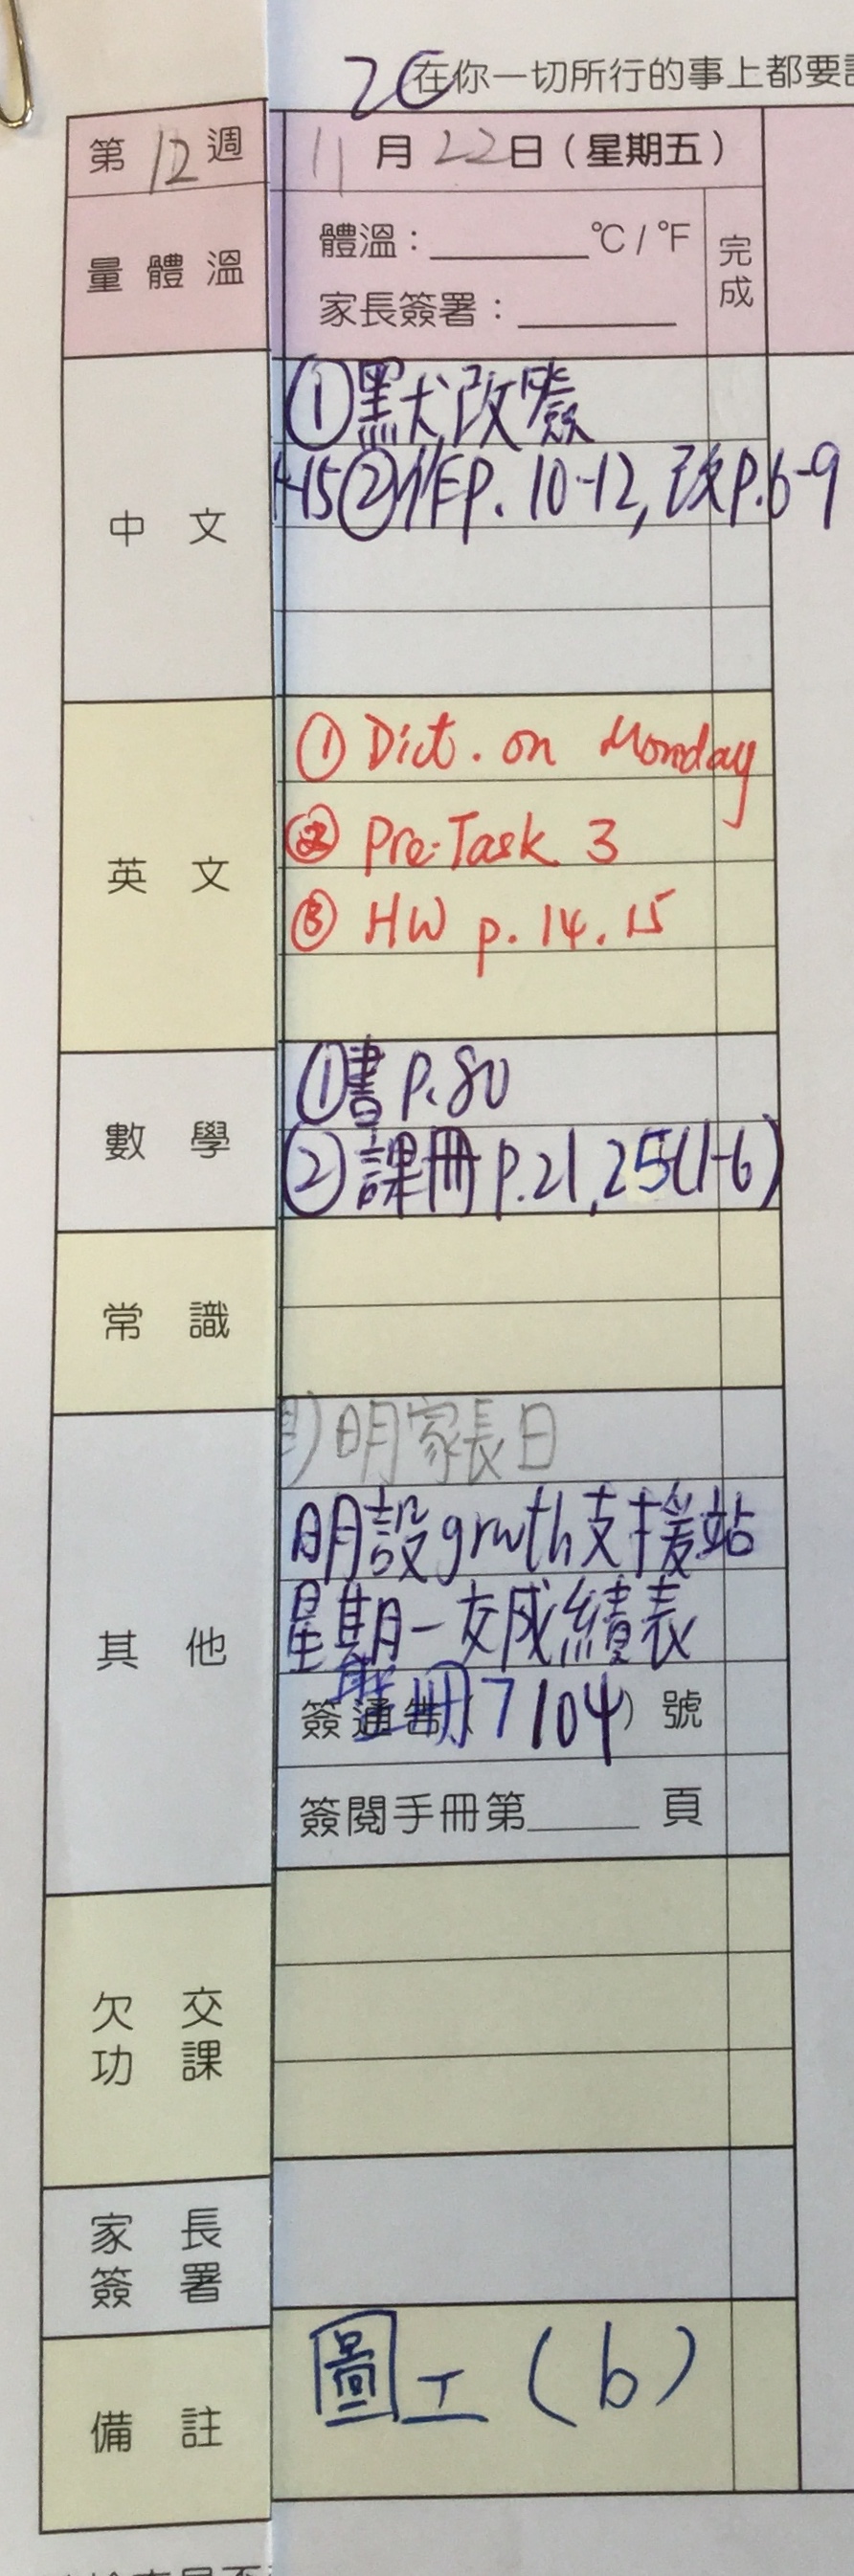 2C
在你一切所行的事上都要
第12週
11月22日（星期五）
量體溫
體溫：______℃/℉
完成
家長簽署：______
中文
①默改簽
-15②作P.10-12,改P.6-9
英文
① Dict. on Monday
② Pre-Task 3
③ HW p.14.15
數學
①書P.80
②課冊P.21,25(1-6)
常識
其他
明家長日
明設growth支援站
星期一交成績表
簽通告 104）號
簽閱手冊第____頁
欠交功課
家長簽署
備註
圖工(b)